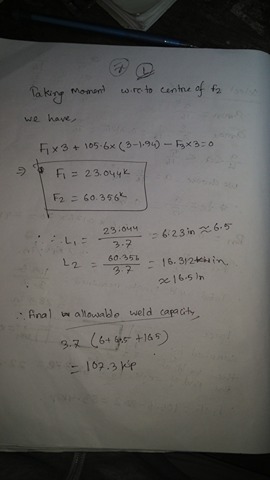 7 L
Taking moment w.r.to centre of F2
we have,
F1 x 3 + 105.6 x (3-1.94) - F3 x 3 = 0
⇒ F1 = 23.044k
F2 = 60.356k
∴ L1 = 23.044 / 3.7 = 6.23 in ≈ 6.5
L2 = 60.356 / 3.7 = 16.312 in
≈ 16.5 in
∴ Final allowable weld capacity,
3.7 (6+6.5+16.5)
= 107.3 kip